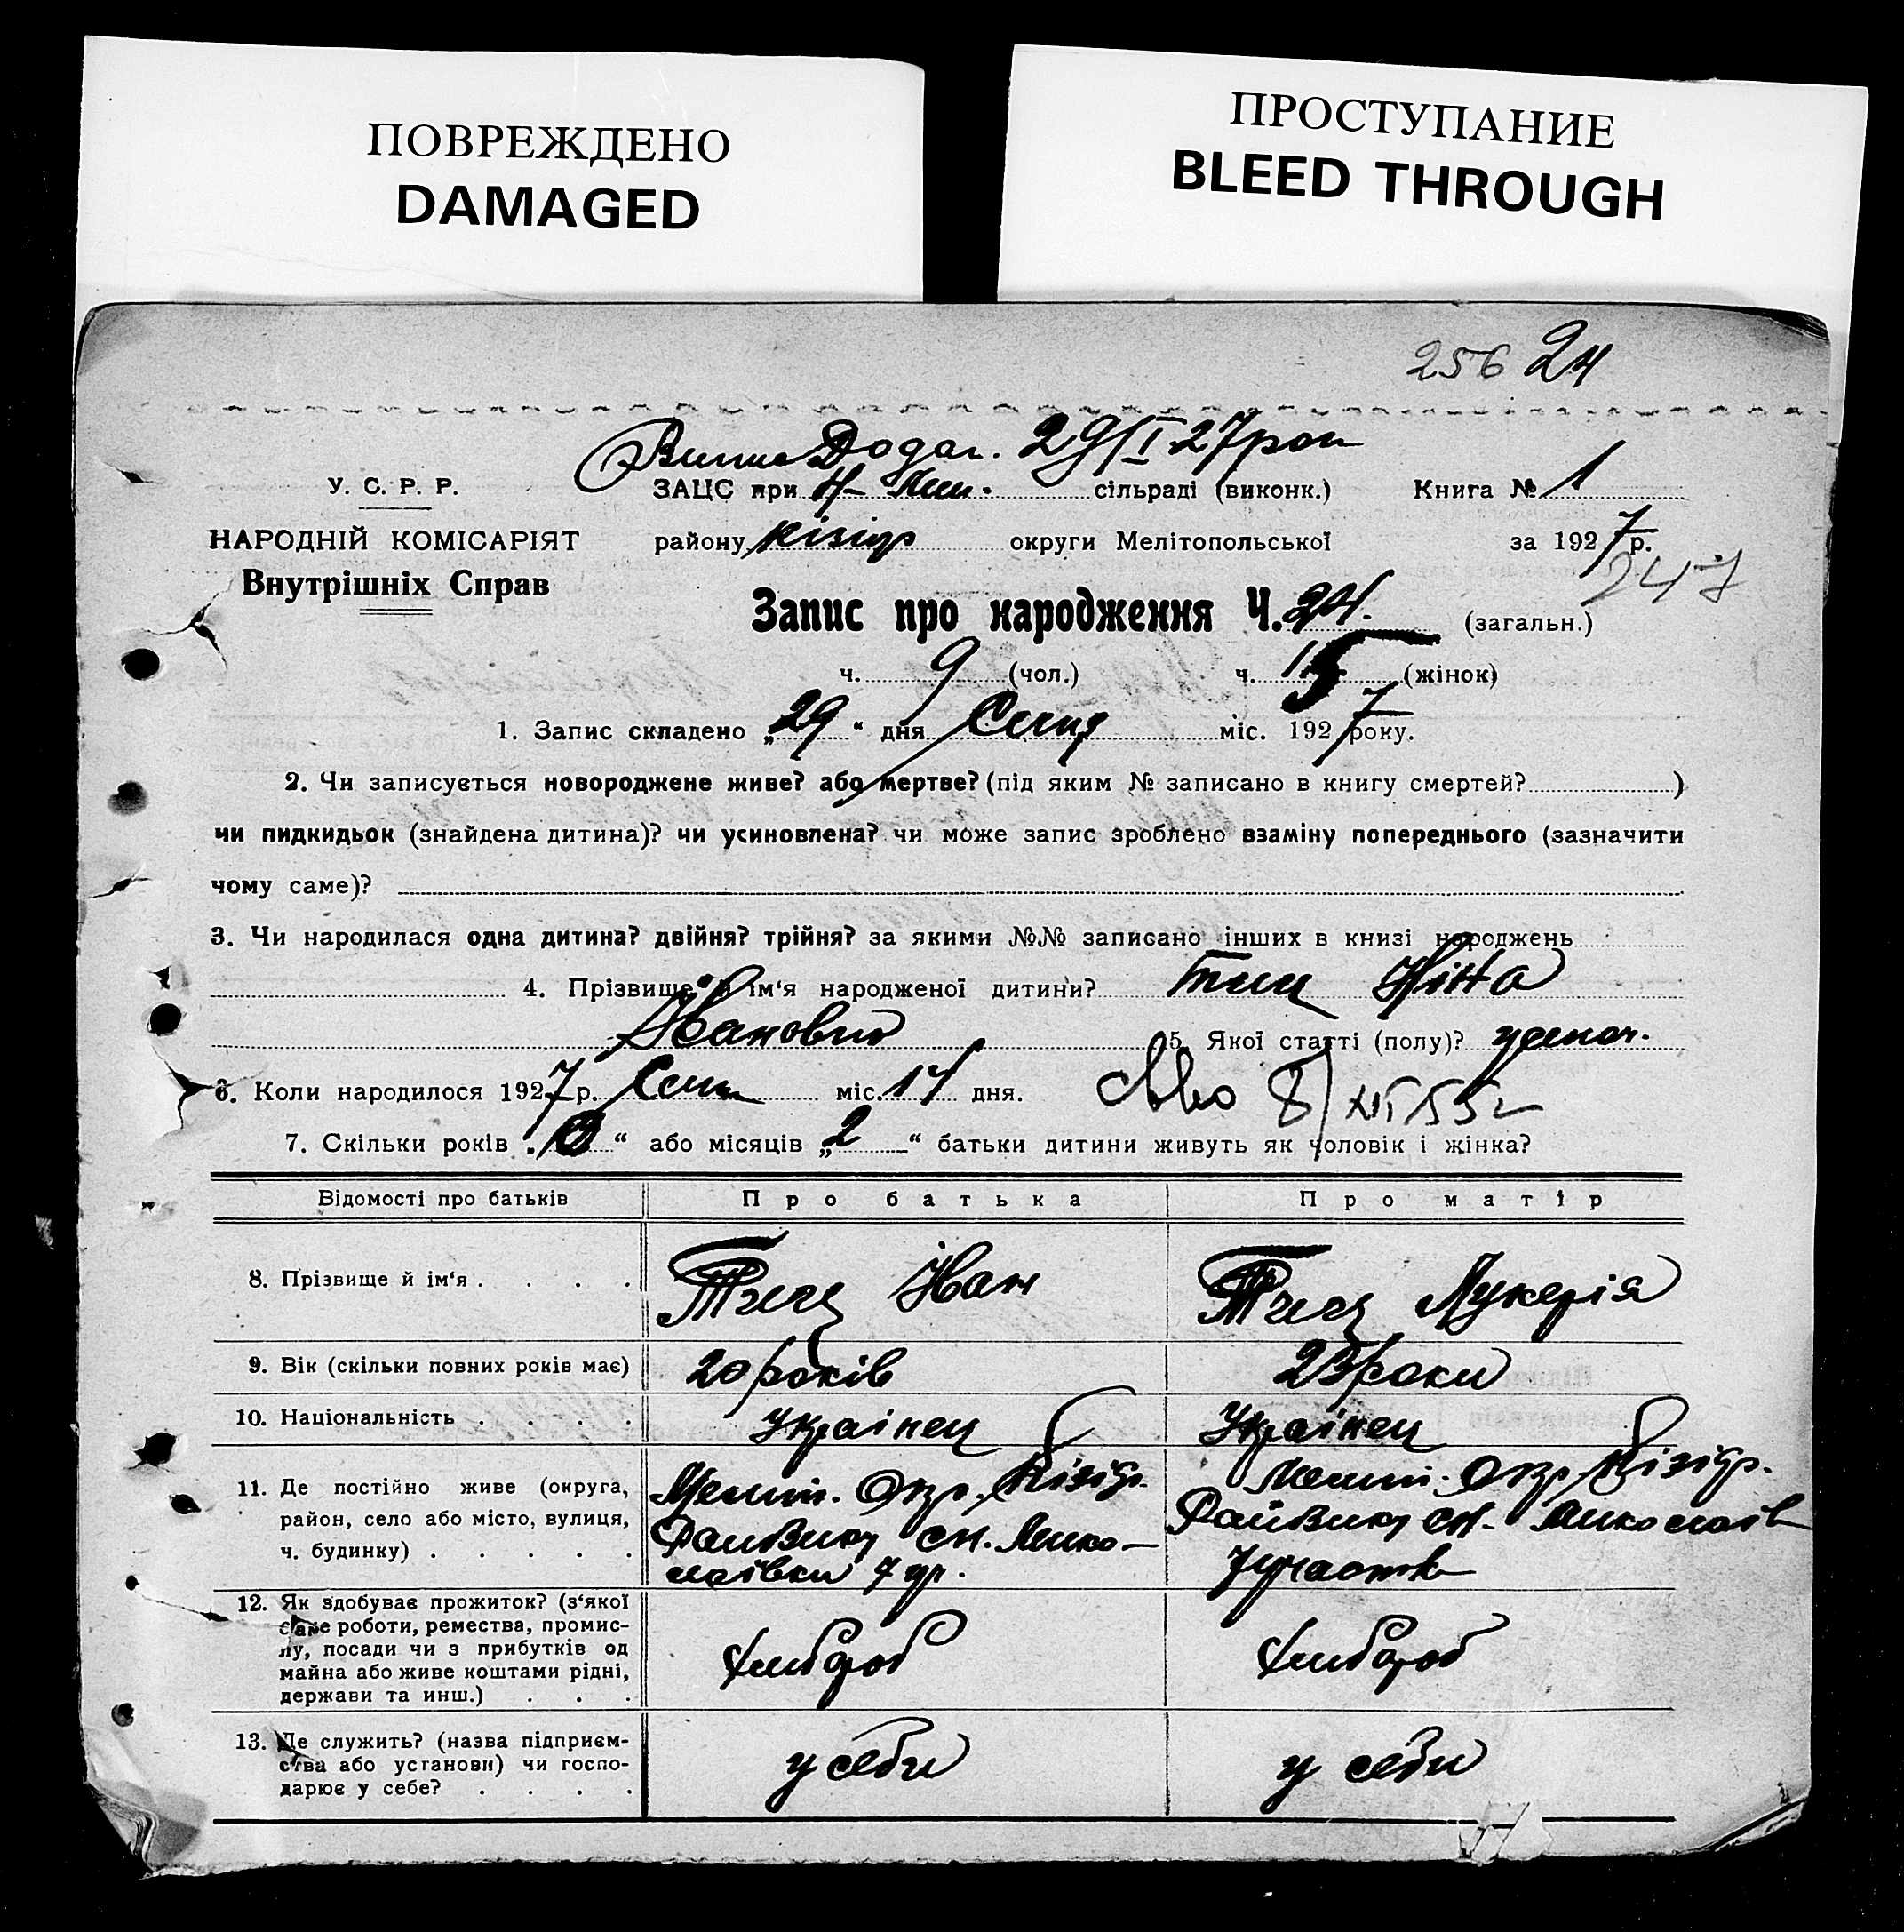 ПОВРЕЖДЕНО
DAMAGED
ПРОСТУПАНИЕ
BLEED THROUGH
256 24
29/I 27 рок
У. С. Р. Р.
ЗАЦС при сільраді (виконк.) Книга № 1
НАРОДНІЙ КОМІСАРІЯТ
району округи Мелітопольської за 1927 р.
Внутрішніх Справ
247
Запис про народження Ч. 24. (загальн.)
ч. 9 (чол.) ч. 15 (жінок)
1. Запис складено „29“ дня Січня міс. 1927 року.
2. Чи записується новороджене живе? або мертве? (під яким № записано в книгу смертей? )
чи пидкидьок (знайдена дитина)? чи усиновлена? чи може запис зроблено взаміну попереднього (зазначити
чому саме)?
3. Чи народилася одна дитина? двійня? трійня? за якими №№ записано інших в книзі народжень
4. Прізвище й ім‘я народженої дитини? Ніна
Ивановна 5. Якої статті (полу)?
6. Коли народилося 1927 р. міс. 14 дня.
7. Скільки років „ “ або місяців „2“ батьки дитини живуть як чоловік і жінка?
Відомості про батьків Про батька Про матір
8. Прізвище й ім‘я . . . . Іван Лукерія
9. Вік (скільки повних років має) 20 років 23 роки
10. Національність . . . . Українец Українец
11. Де постійно живе (округа, Меліт. Окр. Меліт. Окр.
район, село або місто, вулиця,
ч. будинку) . . . . . участок
12. Як здобуває прожиток? (з‘якої
саме роботи, ремества, промис-
лу, посади чи з прибутків од
майна або живе коштами рідні, Хлібороб Хлібороб
держави та инш.) . . .
13. Де служить? (назва підприєм-
ства або установи) чи госпо- у себи у себи
дарює у себе? . . . .